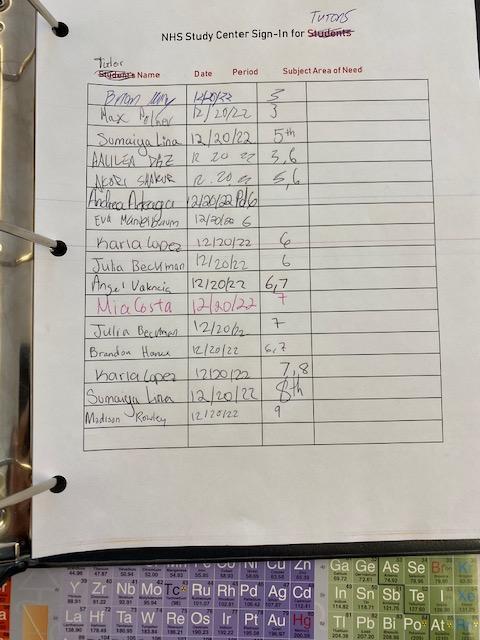 TUTORS
NHS Study Center Sign-In for Students
Tutor
Student's Name Date Period Subject Area of Need
Brian 12/20/22 3
Max 12/20/22 3
Sumaiya Lina 12/20/22 5th
AALILEA DAZ 12 20 22 3,6
12.20.22 5,6
Andrea Arteaga 12/20/22 Pd 6
Eva Mandelbaum 12/20/22 6
Karla Lopez 12/20/22 6
Julia Beckman 12/20/22 6
Angel Valencia 12/20/22 6,7
Mia Costa 12/20/22 7
Julia Beckman 12/20/22 7
Brandon 12/20/22 6,7
Karla Lopez 12/20/22 7,8
Sumaiya Lina 12/20/22 8th
Madison Rowley 12/20/22 9
Mn Fe Co Ni Cu Zn Ga Ge As Se Br Kr
Y Zr Nb Mo Tc Ru Rh Pd Ag Cd In Sn Sb Te I Xe
La Hf Ta W Re Os Ir Pt Au Hg Tl Pb Bi Po At